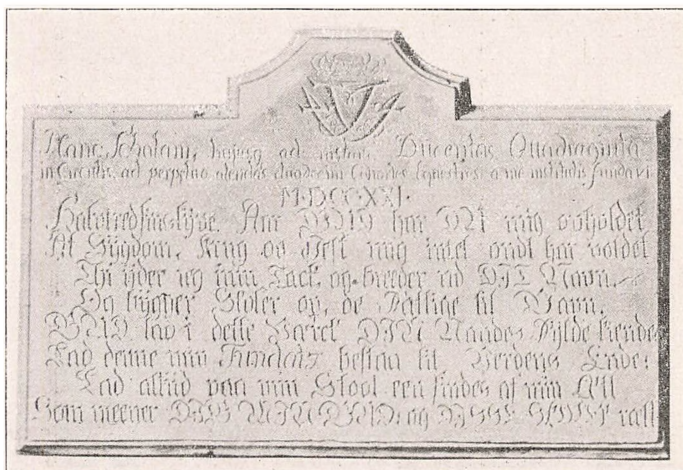 Hanc Scholam, hujusq ad instar, Ducentas Quadraginta
in Circulis, ad perpetuo alendas duodecim Cohortes Equestres a me institutis fundavi
M·DCC·XXI·
Halvtredsinstyve Aar GUD har DU mig opholdet
At Sygdom, Krig og Pest mig intet ondt har voldet
Thi yder jeg min Tack og breeder ud DIT Navn.
Og bygger Skoler op, de Fattige til Gavn.
GUD lad i dette Værck DIN Naades Fylde kiende
Lad denne min Fundatz bestaa til Verdens Ende:
Lad altiid paa min Stool een findes af min Ætt
Som meener DIG MIN GUD, og DISSE SKOLER rætt